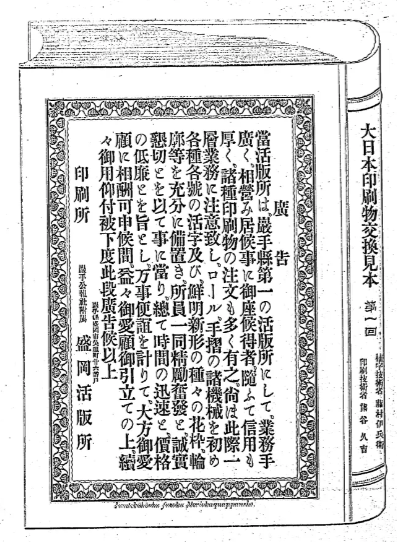 大日本印刷物交換見本 第一回
植字技術者 藤村伊兵衛
印刷技術者 熊谷久吉
廣告
當活版所は、巖手縣第一の活版所にして、業務手
廣く相營み居候事に御座候得者、隨ふて信用も
厚く、諸種印刷物の注文も多く有之尙は此際一
層業務に注意致し、ロール、手摺の諸機械を初め
各種各號の活字及び鮮明新形の種々の花枠、輪
廓等を充分に備置き、所員一同精勵奮發と誠實
懇切とを以て事に當り、總て時間の迅速と、價格
の低廉とを旨とし、万事便詣を計りて、大方御愛
顧に相酬可申候間、益々御愛顧御引立ての上、續
々御用仰付被下度此段廣告候以上
巖手公報社附屬
印刷所 盛岡活版所